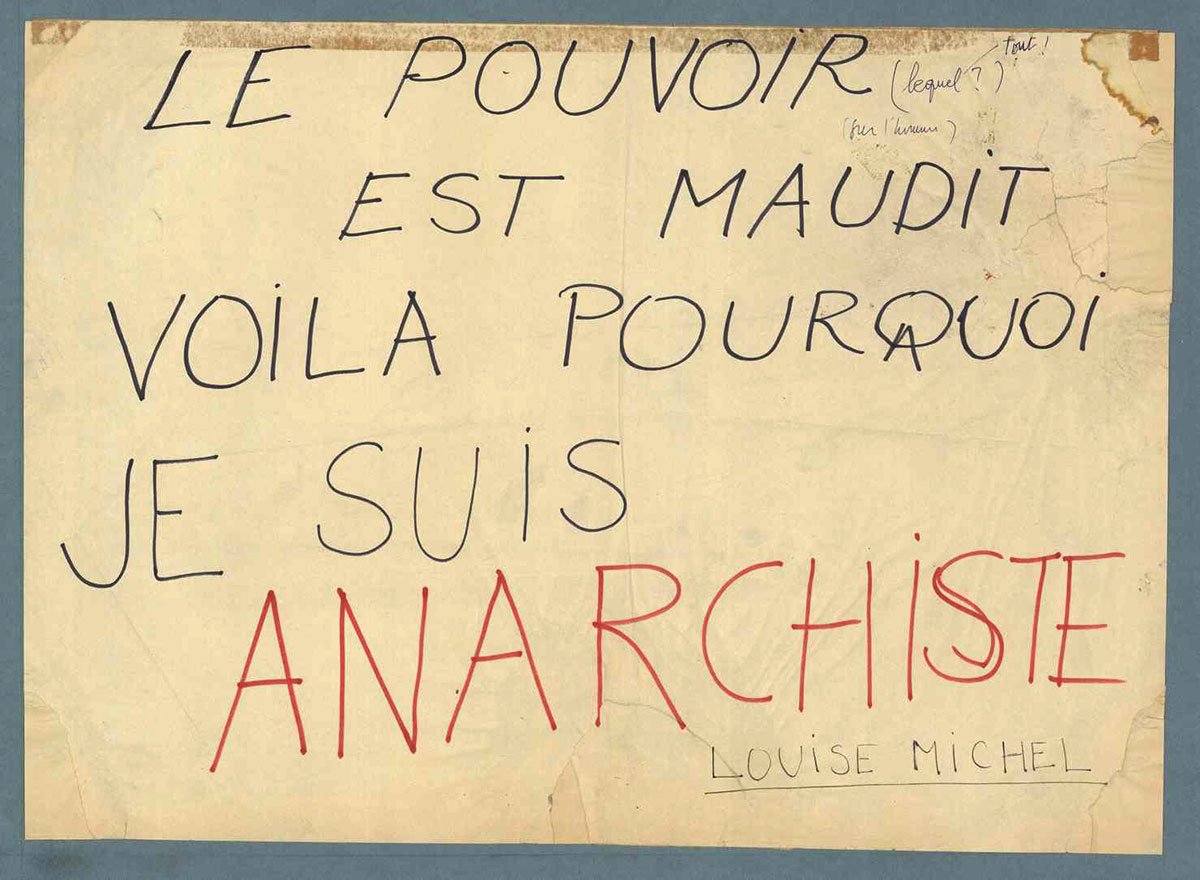 LE POUVOIR (lequel ?) tout !
(sur l'homme)
EST MAUDIT
VOILA POURQUOI
JE SUIS
ANARCHISTE
LOUISE MICHEL